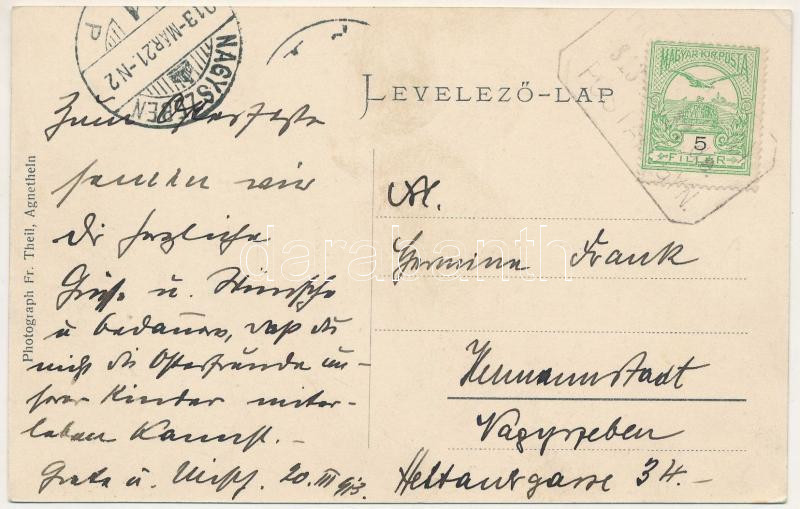 913 MÁR 21. -N 2
NAGYSZEBEN
P
LEVELEZŐ-LAP
MAGYAR KIR. POSTA
5
FILLÉR
Photograph Fr. Theil, Agnetheln
Zum Osterfeste
senden wir
Dir herzliche
Grüße u. Wünsche
u bedauern, daß du
nicht die Osterfreunde un-
serer Kinder miter-
leben kannst. -
Grete u. 20. III 913.
Hermine Frank
Hermannstadt
Nagyszeben
Heltauergasse 34. -
darabanth